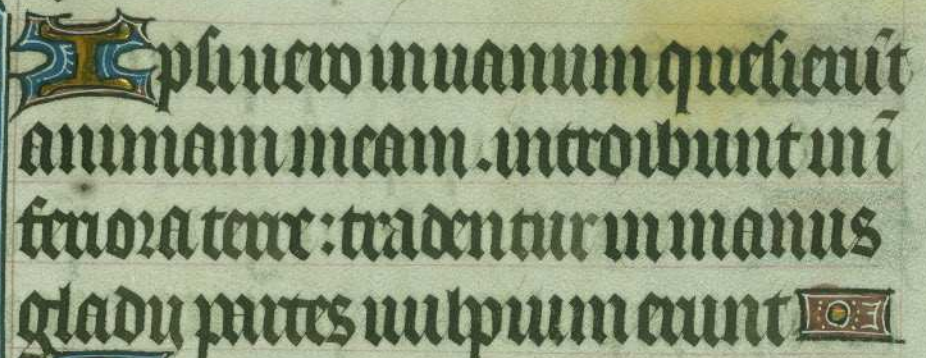 Ipsi uero in uanum quesierūt
animam meam. introibunt in ī
feriora terre: tradentur in manus
gladij partes uulpium erunt